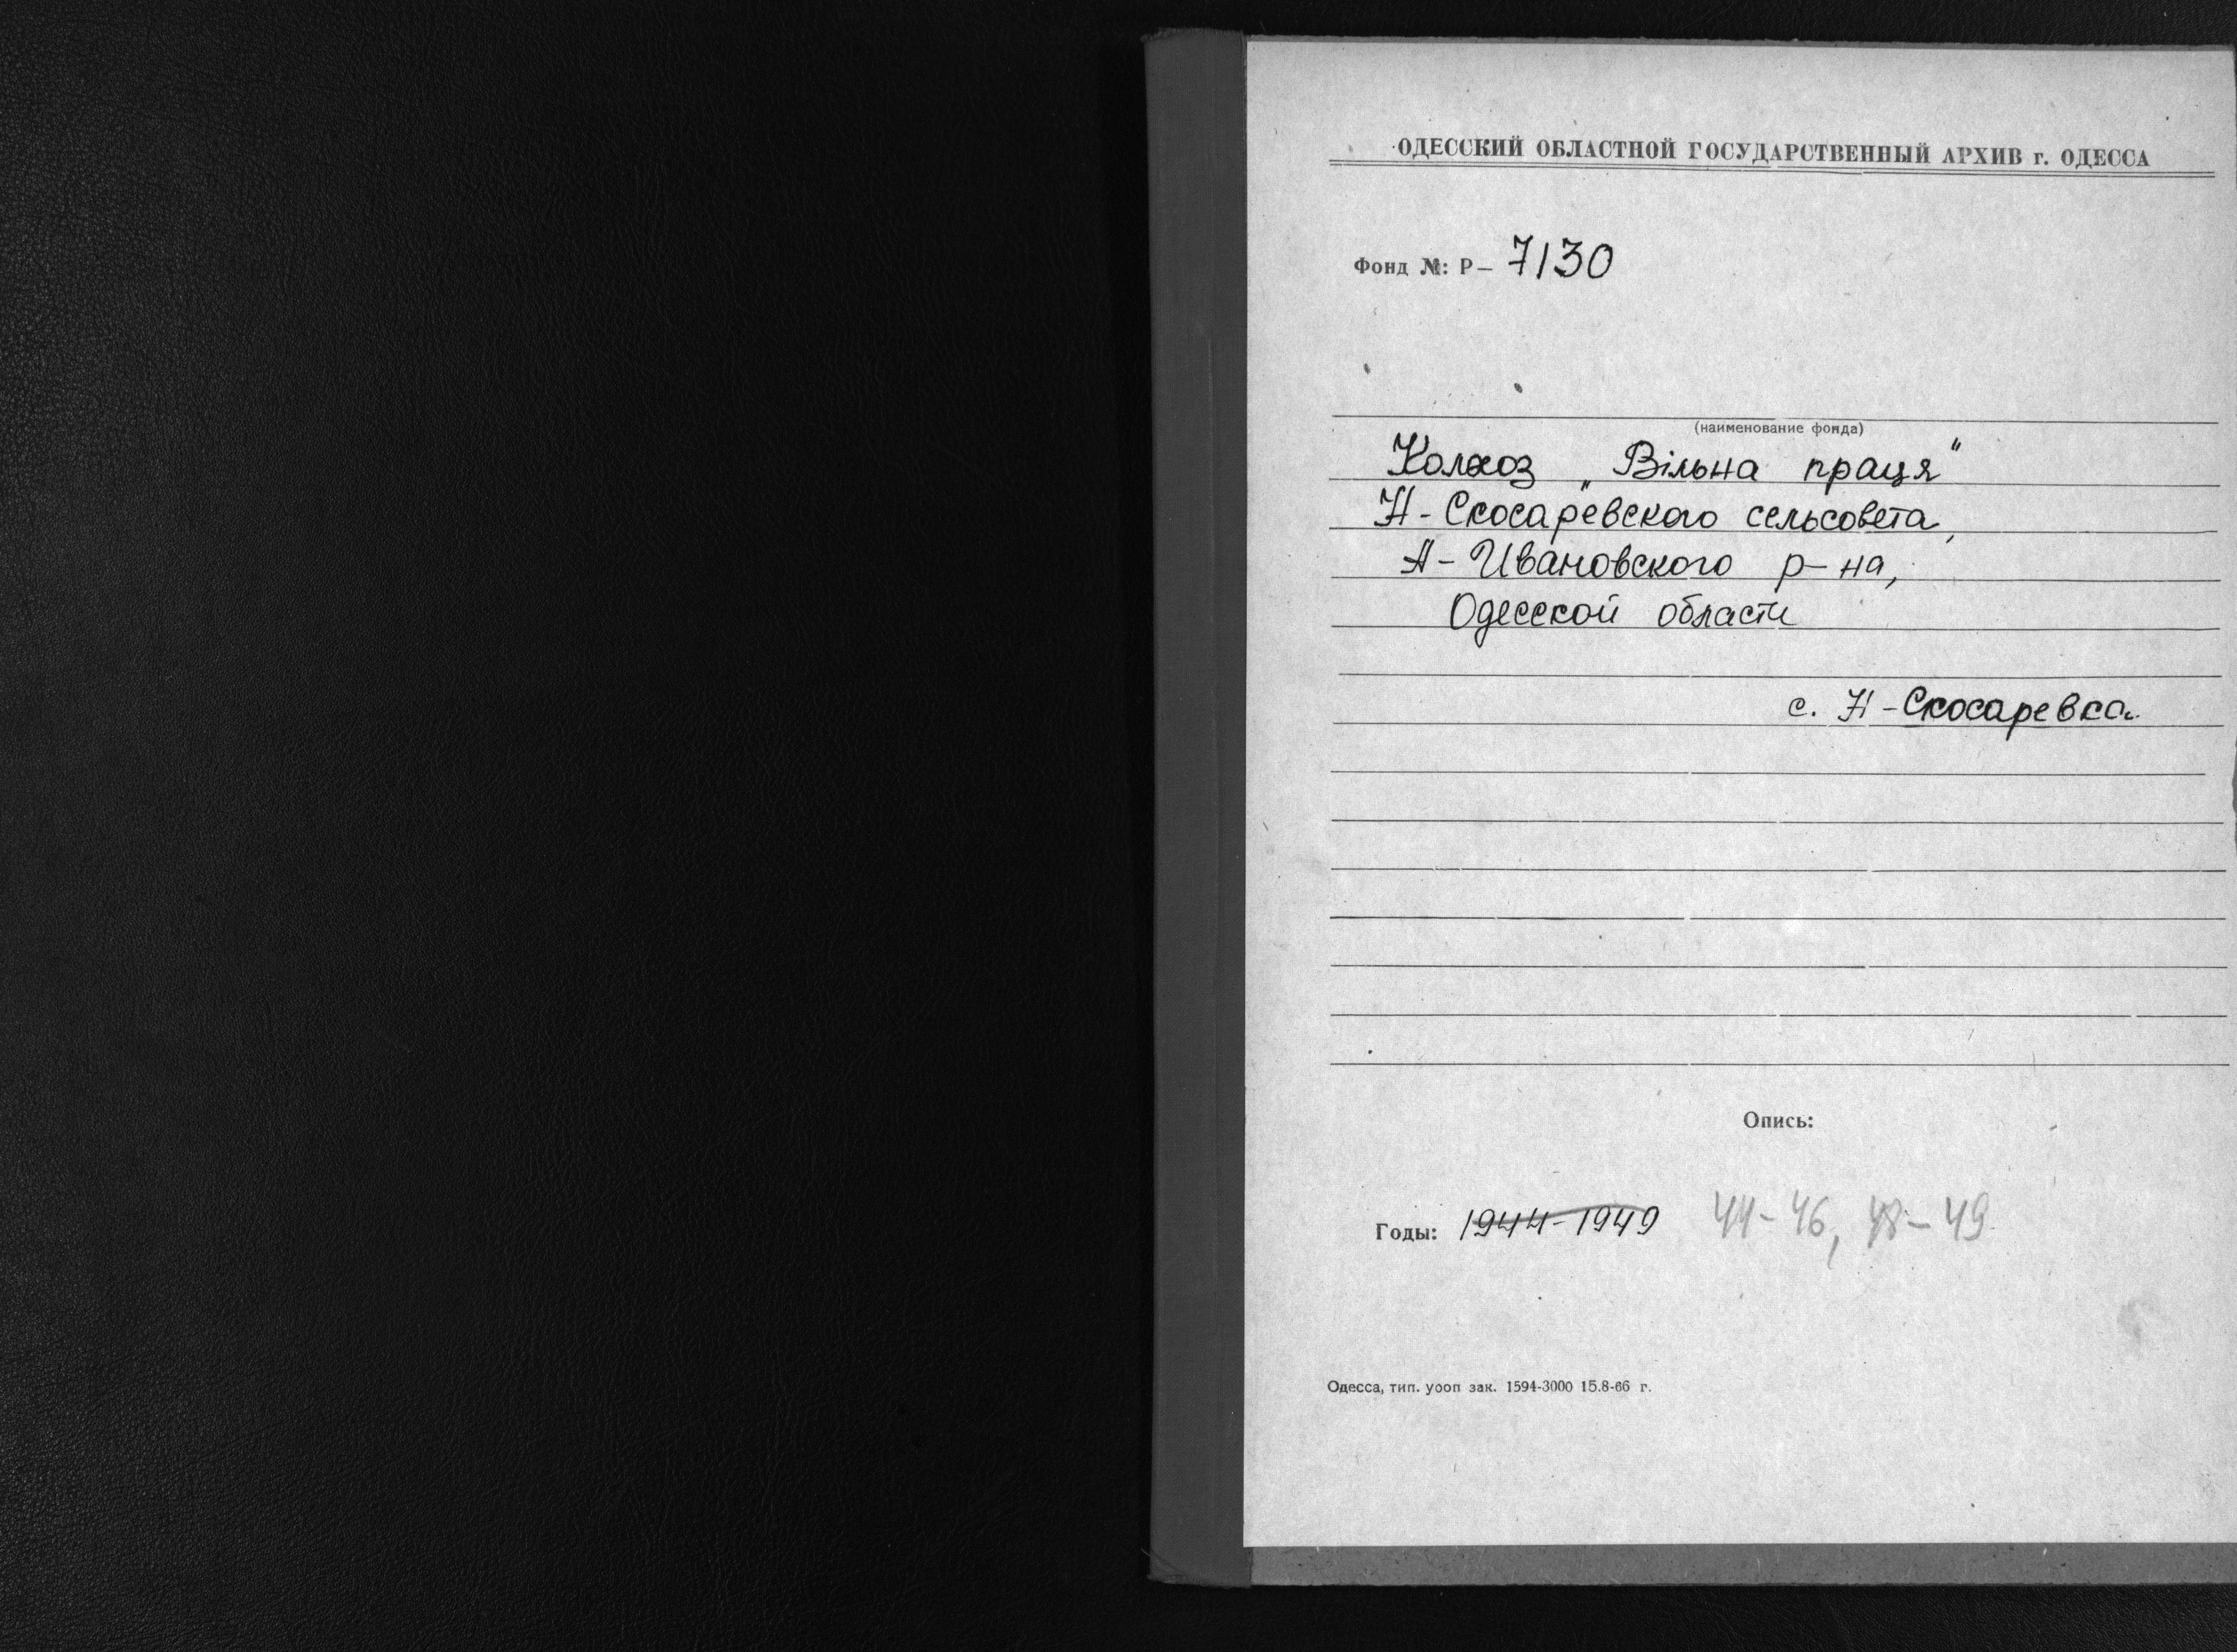 ОДЕССКИЙ ОБЛАСТНОЙ ГОСУДАРСТВЕННЫЙ АРХИВ г. ОДЕССА
Фонд №: Р— 7130
(наименование фонда)
Колхоз „Вільна праця“
Н-Скосаревского сельсовета,
А-Ивановского р-на,
Одесской области
с. Н-Скосаревка
Опись:
Годы: 1944-1949 44-46, 48-49
Одесса, тип. уооп зак. 1594-3000 15.8-66 г.